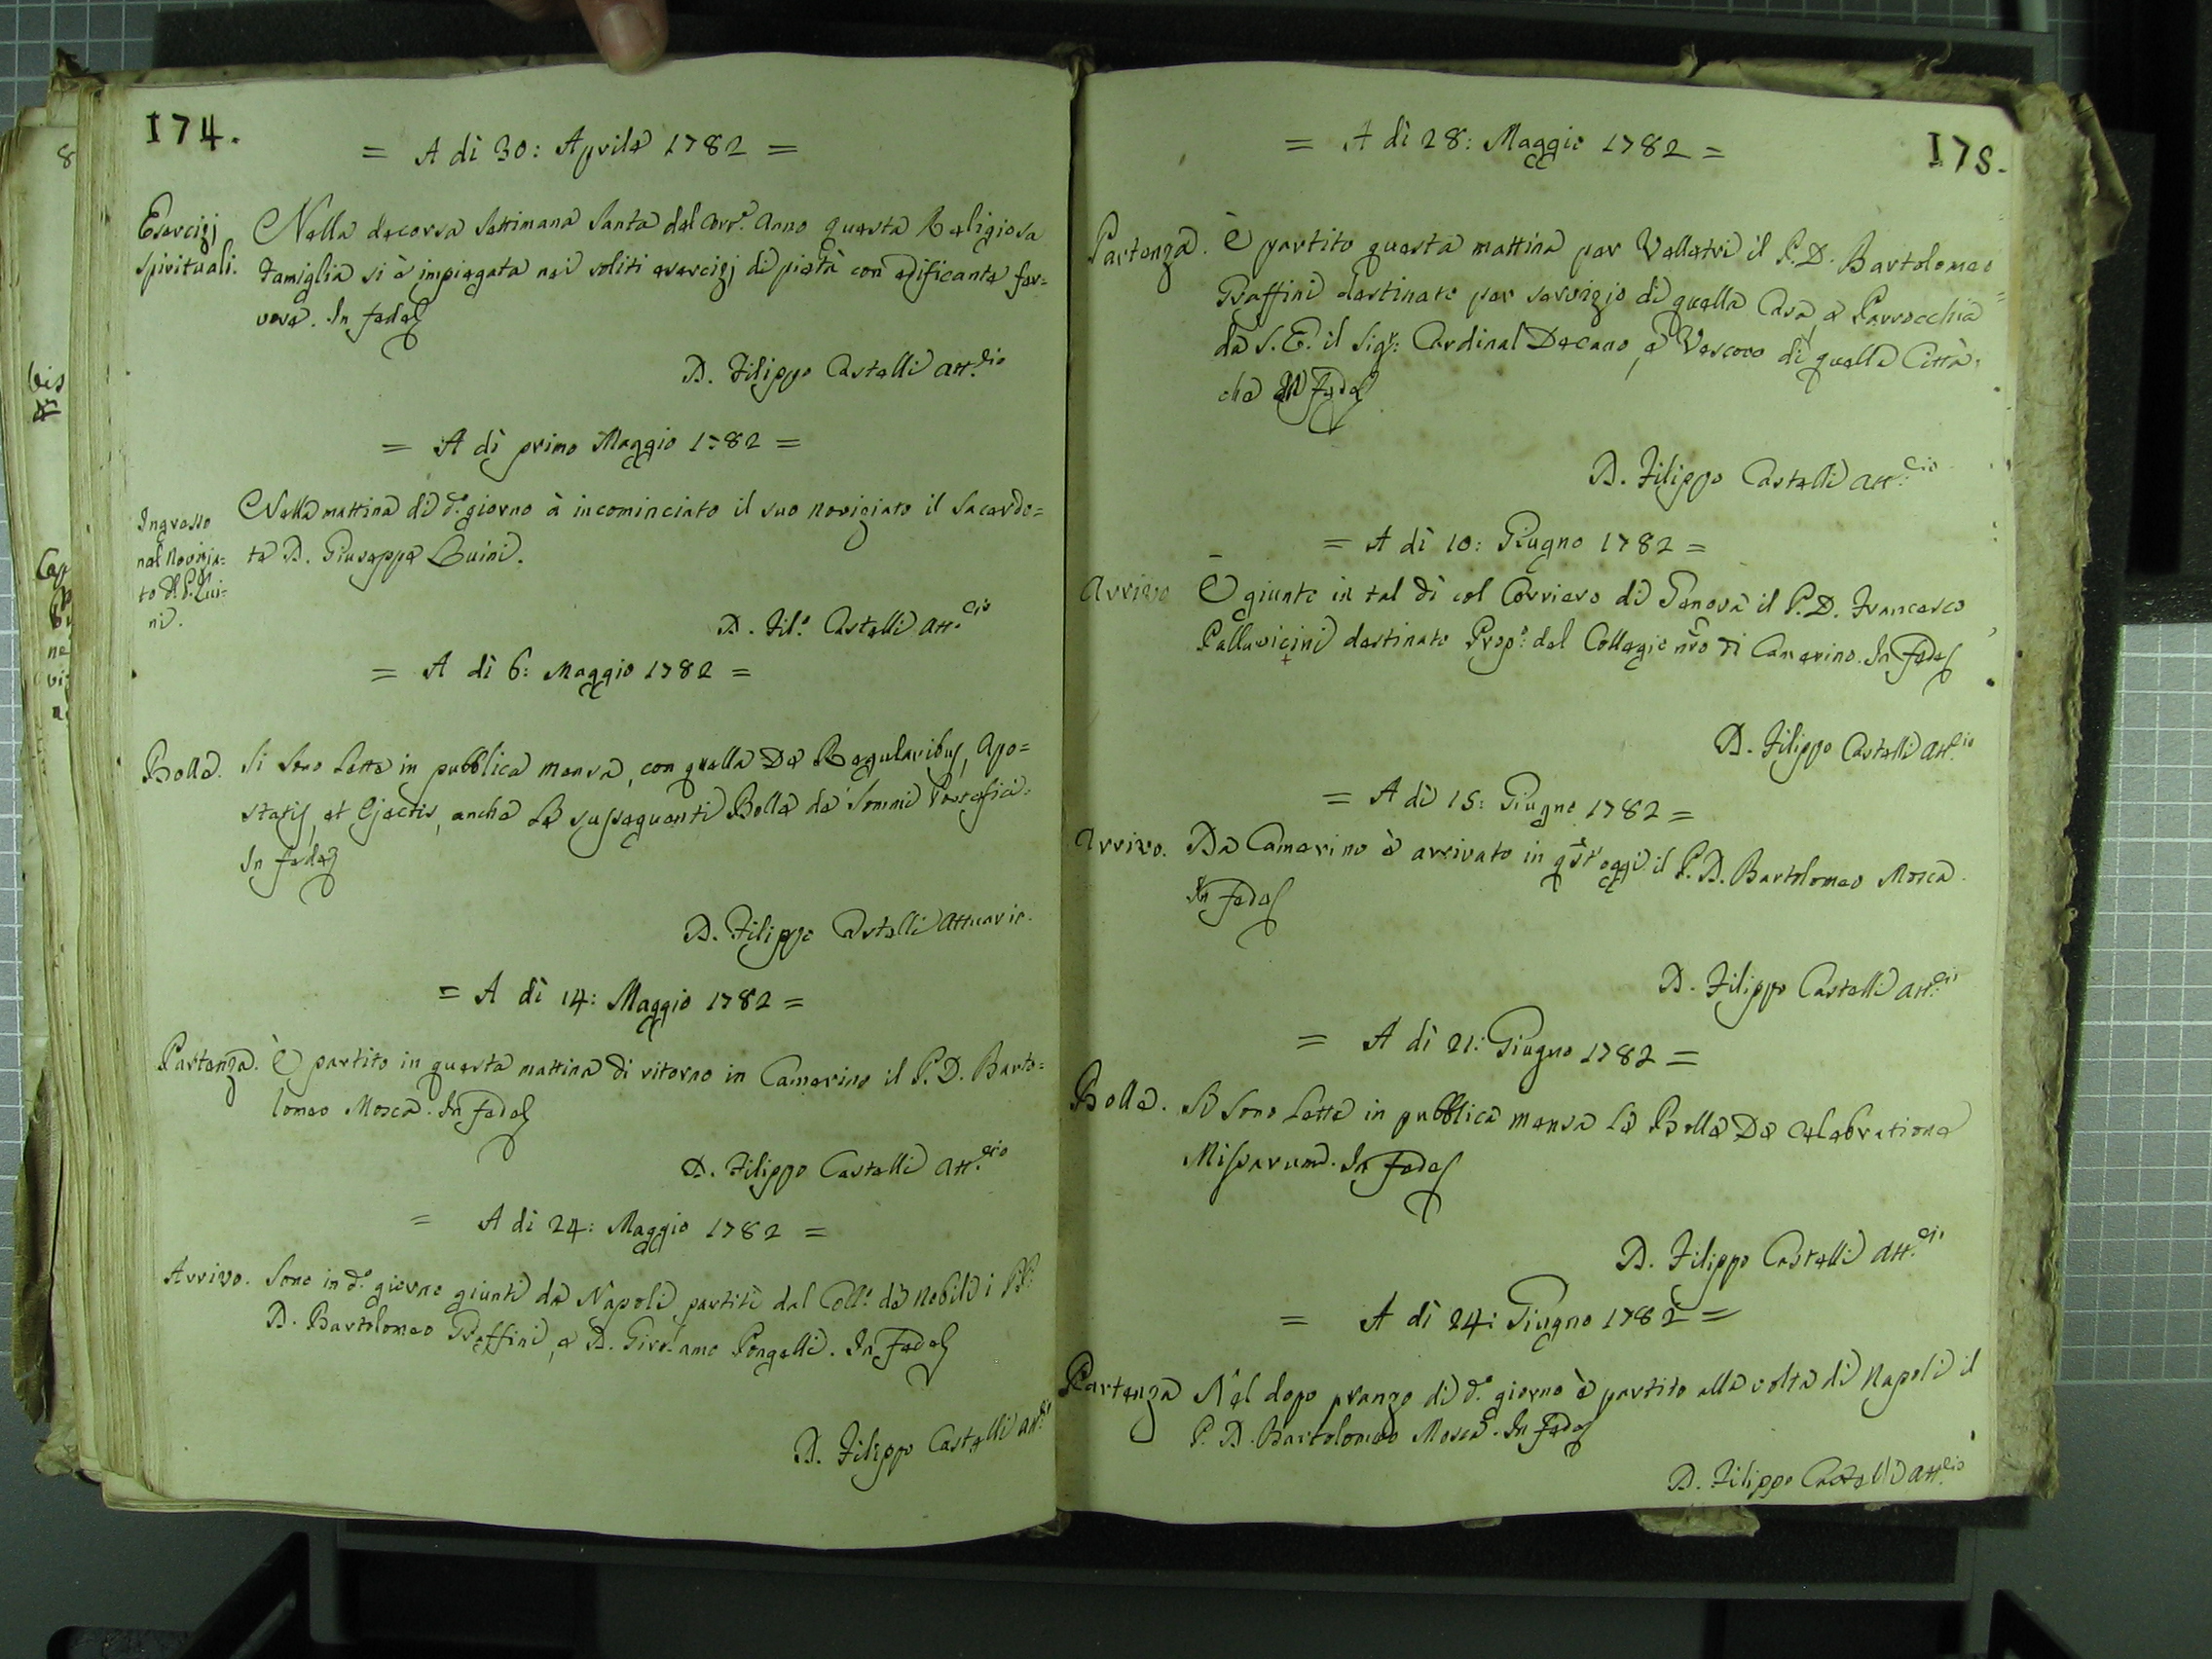 174.
= A dì 30: Aprile 1782 =
Esercizj
Spirituali.
Nella decorsa Settimana Santa del corr.e Anno questa Religiosa
Famiglia si è impiegata nei soliti esercizj di pietà con edificante fer=
vore. In fede
D. Filippo Castelli Att.rio
= A dì primo Maggio 1782 =
Ingresso
nel Novizia=
to del P. Lui=
ni.
Nella mattina di d.o giorno à incominciato il suo noviziato il Sacerdo=
te D. Giuseppe Luini.
D. Fil.o Castelli Att.rio
= A dì 6: Maggio 1782 =
Bolle.
Si sono lette in pubblica mensa, con quella De Regularibus, Apo=
statis, et Ejectis, anche le susseguenti Bolle de' Sommi Pontefici.
In fede
D. Filippo Castelli Attuario.
= A dì 14: Maggio 1782 =
Partenza.
È partito in questa mattina di ritorno in Camerino il P. D. Barto=
lomeo Mosca. In fede
D. Filippo Castelli Att.rio
= A dì 24: Maggio 1782 =
Arrivo.
Sono in d.o giorno giunti da Napoli partiti dal Coll.o de Nobili i PP.
D. Bartolomeo Raffini, e D. Girolamo Pongelli. In Fede
D. Filippo Castelli Att.rio
175.
= A dì 28: Maggio 1782 =
Partenza.
È partito questa mattina per Velletri il P. D. Bartolomeo
Raffini destinato per servizio di quella Casa, e Parrocchia
da S. E. il Sig.r Cardinal Decano, e Vescovo di quella Città.
che In Fede
D. Filippo Castelli Att.rio
= A dì 10: Giugno 1782 =
Arrivo
È giunto in tal dì col Corriero di Genova il P. D. Francesco
Pallavicini destinato Prep.o del Collegio nr̃o di Camerino. In Fede
D. Filippo Castelli Att.rio
= A dì 15: Giugno 1782 =
Arrivo.
Da Camerino è arrivato in qst' oggi il P. D. Bartolomeo Mosca.
In fede
D. Filippo Castelli Att.rio
= A dì 21: Giugno 1782 =
Bolle.
Si sono lette in pubblica mensa le Bolle De celebratione
Missarum. In Fede
D. Filippo Castelli Att.rio
= A dì 24: Giugno 1782 =
Partenza
Nel dopo pranzo di d.o giorno è partito alla volta di Napoli il
P. D. Bartolomeo Mosca. In Fede
D. Filippo Castelli Att.rio